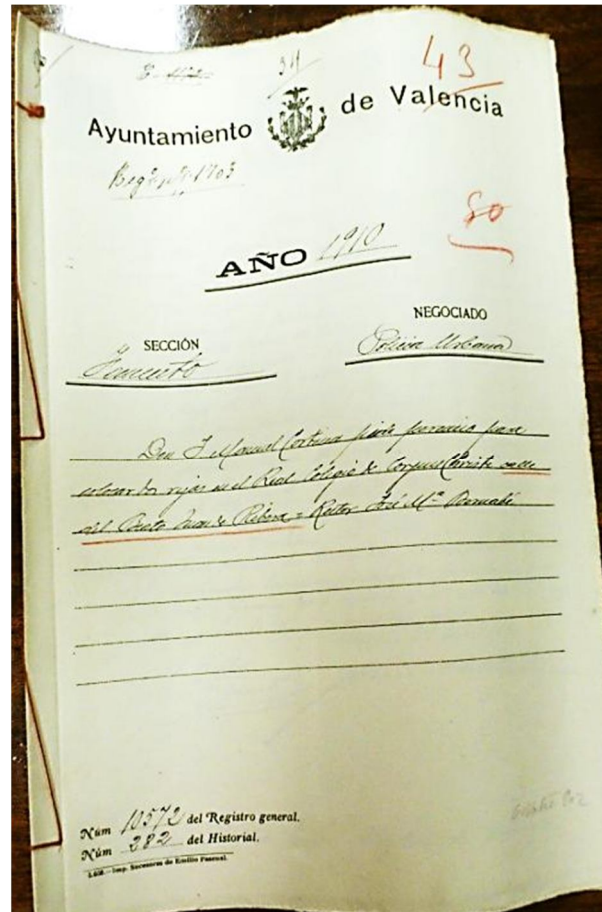 34
43
Ayuntamiento de Valencia
Regº nº 1703
80
AÑO 1910
NEGOCIADO
SECCIÓN
Policia Urbana
Fomento
Don J. Manuel Cortina pide permiso para
colocar dos rejas en el Real Colegio de Corpus Christi calle
del Beato Juan de Ribera = Rector José Mª
Núm 10572 del Registro general.
Núm 282 del Historial.
Imp. Sucesores de Emilio Pascual.